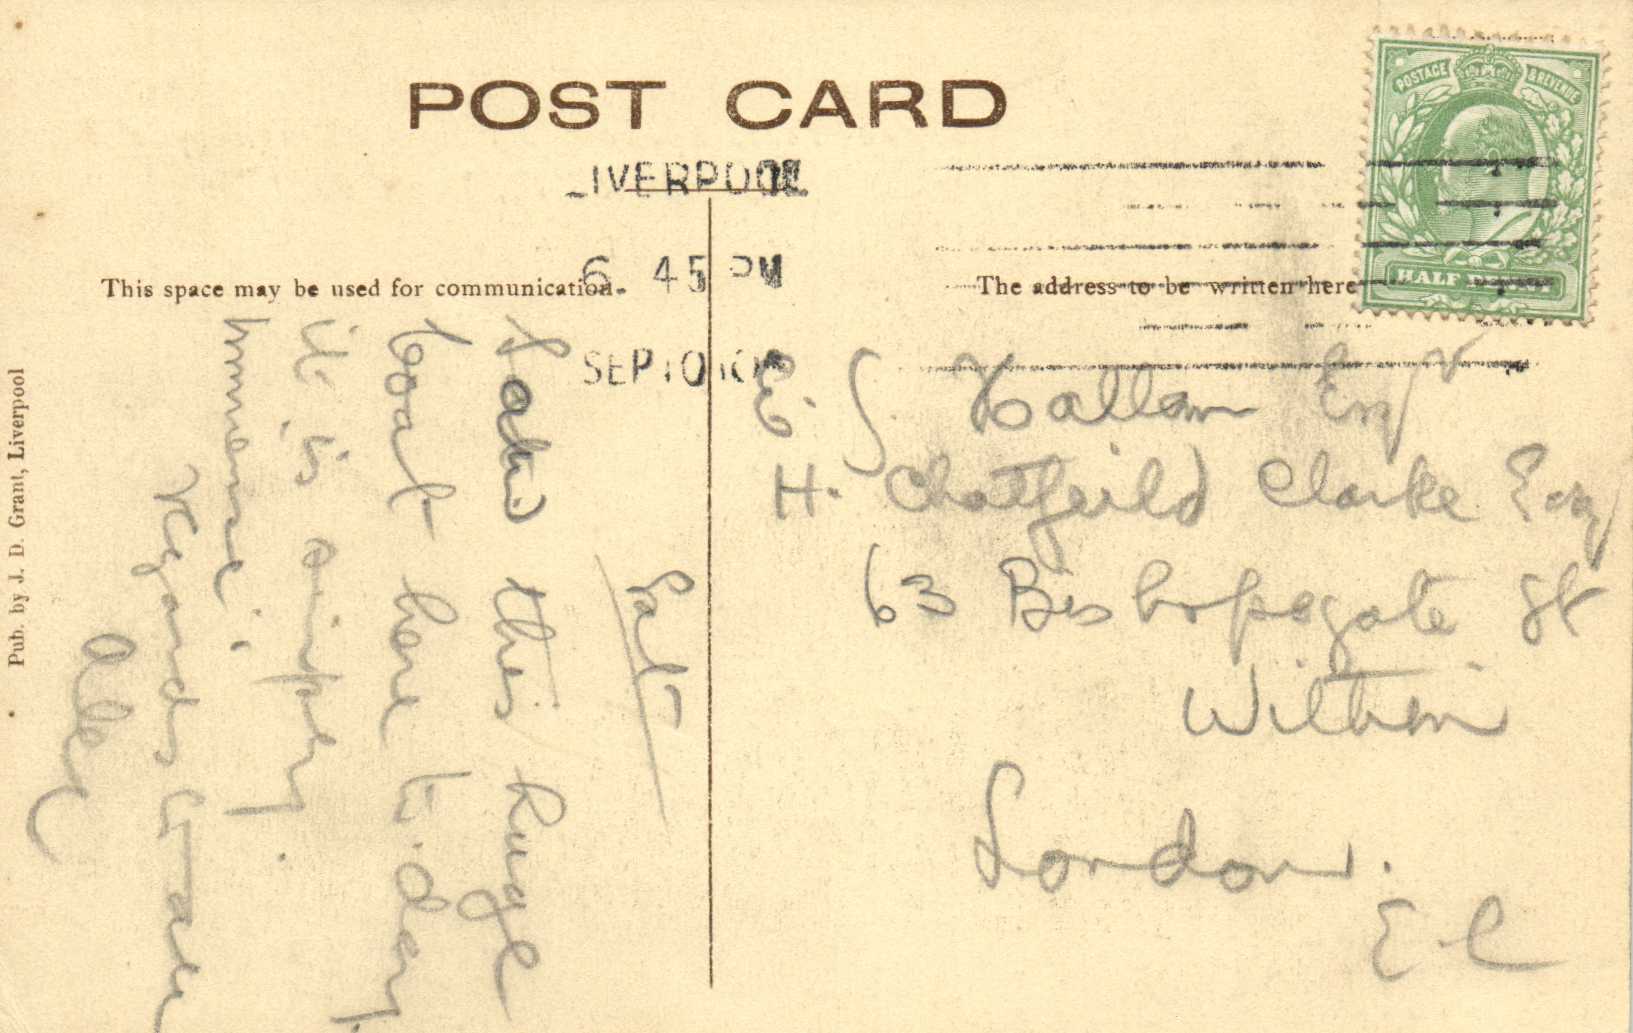 POST CARD
LIVERPOOL
6. 45 PM
SEP 10 10
POSTAGE & REVENUE
HALF PENNY
This space may be used for communication.
The address to be written here
Pub. by J. D. Grant, Liverpool
Sat
this huge
boat here to-day.
it is simply
immense.
Regards
E. S. Hallam Esq
H. Chatfeild Clarke Esq
63 Bishopsgate St
Within
London.
E. C